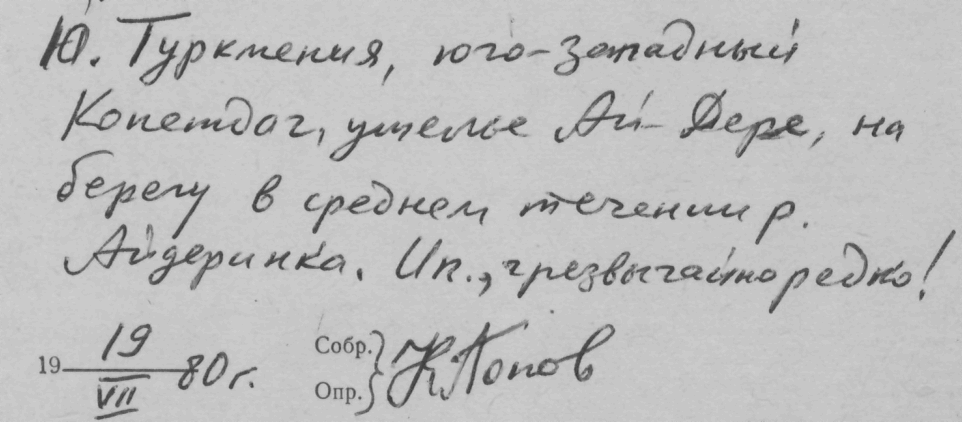 Ю. Туркмения, юго-западный
Копетдаг, ущелье Ай-Дере, на
берегу в среднем течении р.
Айдеринка. Ип., чрезвычайно редко!
19 19/VII 80 г. Собр. Опр. К Попов